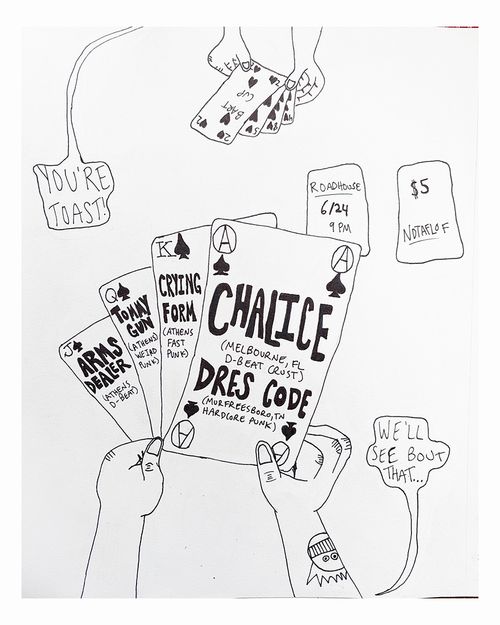 BART
CUP
2
2
5
8
YOU'RE
TOAST!
ROADHOUSE
6/24
9 PM
$5
NOTAFLOF
A
A
CHALICE
(MELBOURNE, FL
D-BEAT CRUST)
DRES CODE
(MURFREESBORO, TN
HARDCORE PUNK)
A
A
K
CRYING
FORM
(ATHENS
FAST
PUNK)
Q
TOMMY
GUN
(ATHENS
WEIRD
PUNK)
J
ARMS
DEALER
(ATHENS
D-BEAT)
WE'LL
SEE BOUT
THAT...